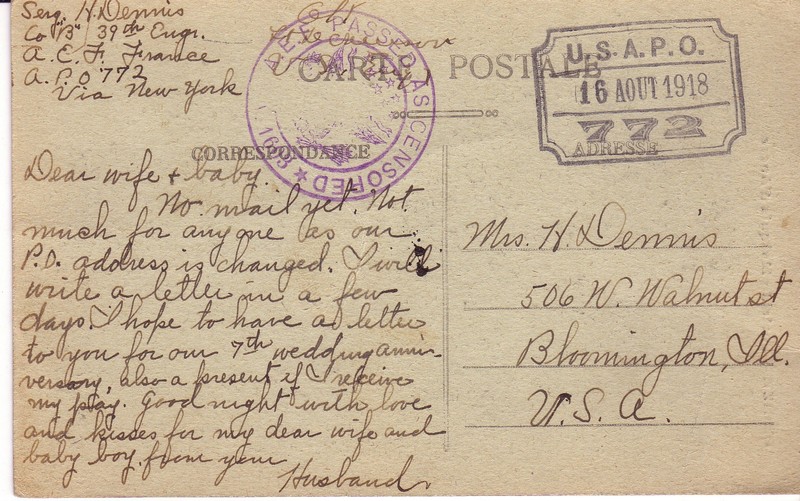 Serg. H. Dennis
Co "B" 39th Engr.
A. E. F. France
A. P. O 772
Via New York
CARTE POSTALE
A.E.F. PASSED AS CENSORED
U.S.A.P.O.
16 AOUT 1918
772
CORRESPONDANCE
ADRESSE
Dear wife & baby.
No mail yet. Not
much for anyone as our
P.O. address is changed. I will
write a letter in a few
days. I hope to have a letter
to you for our 7th wedding anni-
versary, also a present if I receive
my pay. Good night with love
and kisses for my dear wife and
baby boy. from your
Husband
Mrs. H. Dennis
506 W. Walnut st
Bloomington, Ill.
U. S. A.